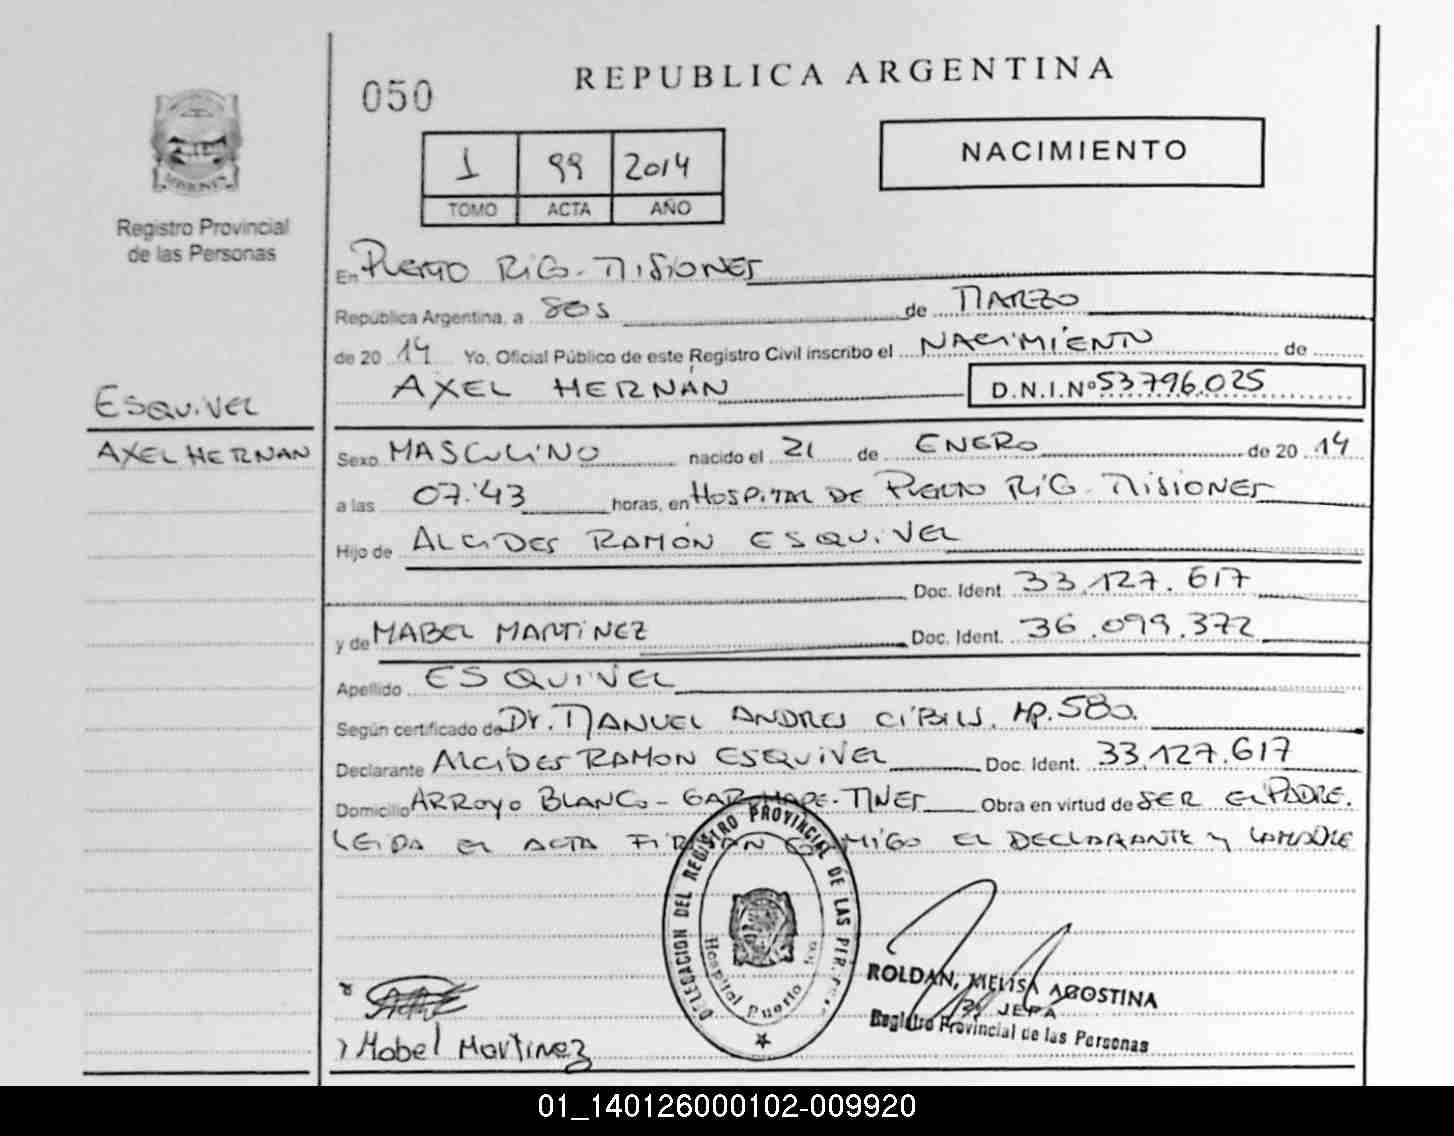 050
REPUBLICA ARGENTINA
NACIMIENTO
1 99 2014
TOMO ACTA AÑO
MISIONES
Registro Provincial
de las Personas
En PUERTO RICO - MISIONES
República Argentina, a SEIS de MARZO
de 20 14 Yo, Oficial Público de este Registro Civil inscribo el NACIMIENTO de
AXEL HERNÁN D.N.I.Nº 53796.025
ESQUIVEL
AXEL HERNAN
Sexo MASCULINO nacido el 21 de ENERO de 20 14
a las 07:43 horas, en HOSPITAL DE PUERTO RICO - MISIONES
Hijo de ALCIDES RAMÓN ESQUIVEL
Doc. Ident. 33.127.617
y de MABEL MARTINEZ Doc. Ident. 36.099.372
Apellido ESQUIVEL
Según certificado de Dr. MANUEL ANDRES CIBILS. MP. 580.
Declarante ALCIDES RAMON ESQUIVEL Doc. Ident. 33.127.617
Domicilio ARROYO BLANCO - GARUHAPE - MNES Obra en virtud de SER EL PADRE.
LEIDA EL ACTA FIRMAN CONMIGO EL DECLARANTE y LA MADRE
DELEGACION DEL REGISTRO PROVINCIAL DE LAS
Hospital Puerto
ROLDAN, MELISA AGOSTINA
JEFA
Registro Provincial de las Personas
Mabel Martinez
01_140126000102-009920